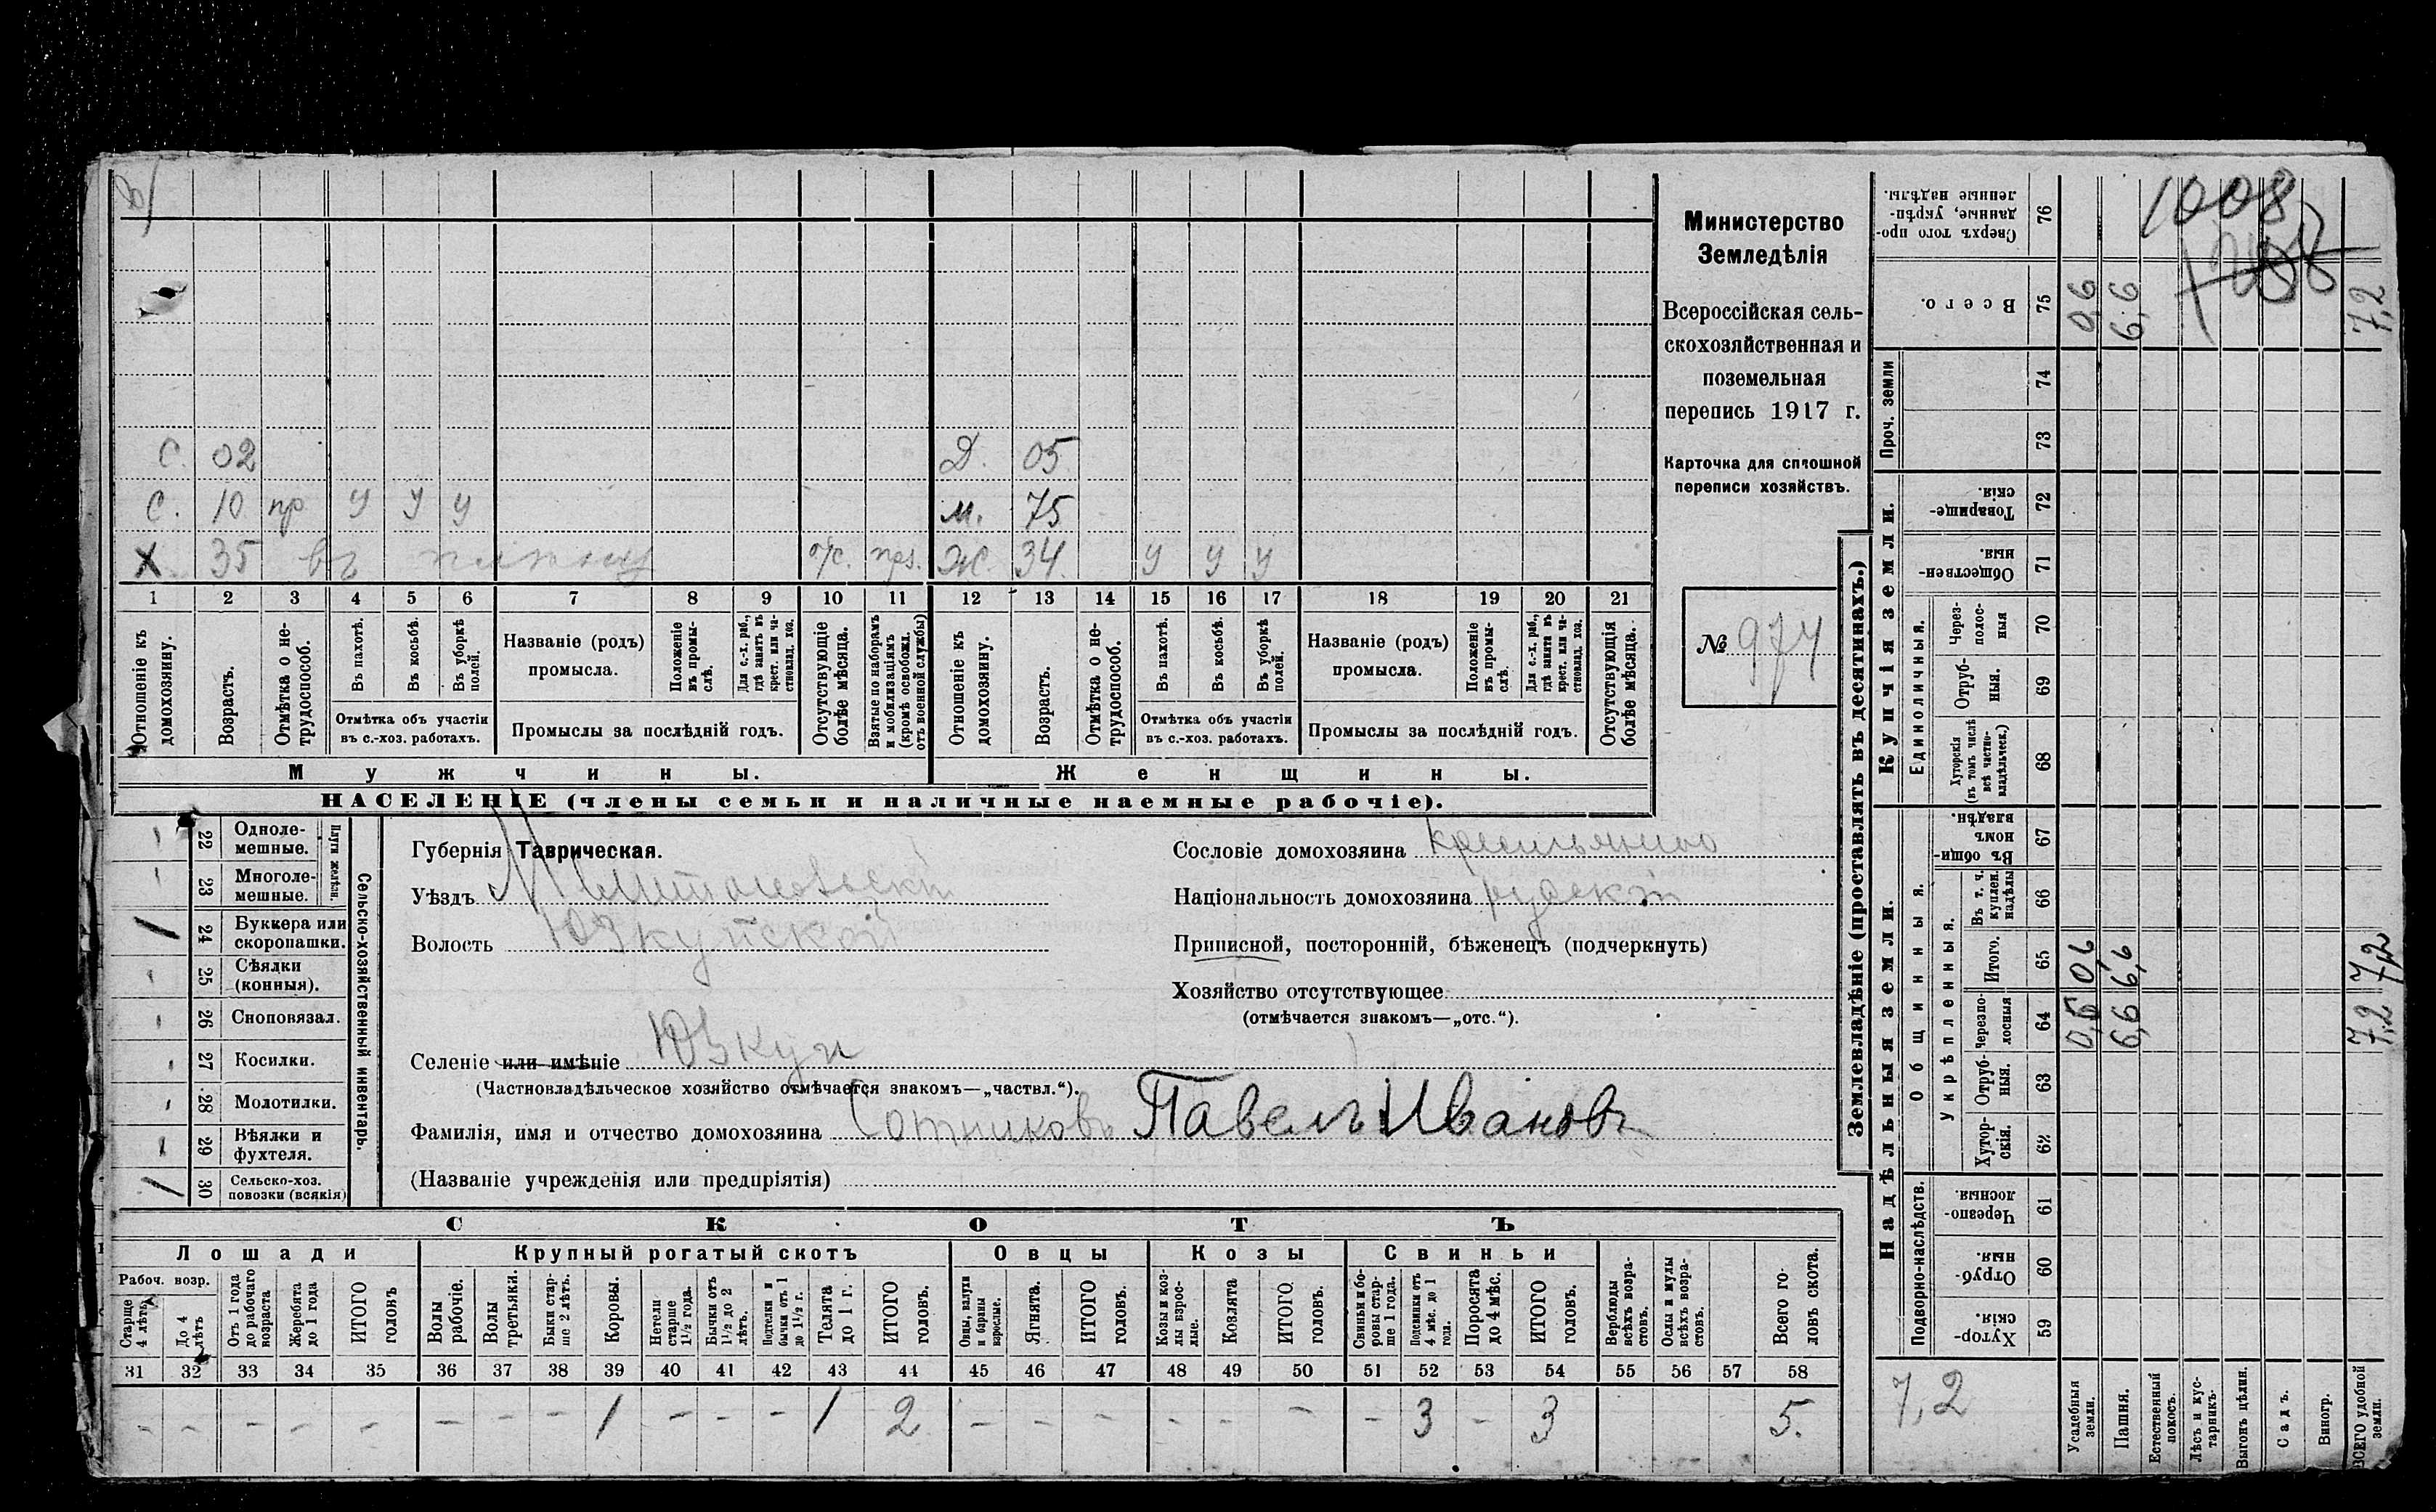 1008
Министерство
Земледѣлія
Всероссійская сель-
скохозяйственная и
поземельная
перепись 1917 г.
Карточка для сплошной
переписи хозяйствъ.
№ 974
С. 02 Д. 05
С. 10 пр У У У м. 75
Х 35 въ плѣну отс. прз. Ж. 34 У У У
1 2 3 4 5 6 7 8 9 10 11 12 13 14 15 16 17 18 19 20 21
Отношеніе къ домохозяину.
Возрастъ.
Отмѣтка о не-
трудоспособ.
Въ пахотѣ.
Въ косьбѣ.
Въ уборкѣ
полей.
Отмѣтка объ участіи
въ с.-хоз. работахъ.
Названіе (родъ)
промысла.
Положеніе
въ промы-
слѣ.
Для с.-х. раб.,
гдѣ занятъ въ
крест. или ча-
стновлад. хоз.
Промыслы за послѣдній годъ.
Отсутствующіе
болѣе мѣсяца.
Взятые по наборамъ
и мобилизаціямъ
(кромѣ освобожд.
отъ военной службы)
Отношеніе къ
домохозяину.
Возрастъ.
Отмѣтка о не-
трудоспособ.
Въ пахотѣ.
Въ косьбѣ.
Въ уборкѣ
полей.
Отмѣтка объ участіи
въ с.-хоз. работахъ.
Названіе (родъ)
промысла.
Положеніе
въ промы-
слѣ.
Для с.-х. раб.,
гдѣ занята въ
крест. или ча-
стновлад. хоз.
Промыслы за послѣдній годъ.
Отсутствующія
болѣе мѣсяца.
Мужчины.
Женщины.
НАСЕЛЕНІЕ (члены семьи и наличные наемные рабочіе).
22 Одноле-
мешные.
23 Многоле-
мешные.
Плуги желѣзн.
24 Буккера или
скоропашки.
25 Сѣялки
(конныя).
26 Сноповязал.
27 Косилки.
28 Молотилки.
29 Вѣялки и
фухтеля.
30 Сельско-хоз.
повозки (всякія)
Сельско-хозяйственный инвентарь.
Губернія Таврическая.
Уѣздъ Мелитопольскій
Волость Юзкуйской
Селеніе или имѣніе Юзкуи
(Частновладѣльческое хозяйство отмѣчается знакомъ—„частвл.“).
Фамилія, имя и отчество домохозяина Сотниковъ Павелъ Ивановъ
(Названіе учрежденія или предпріятія)
Сословіе домохозяина крестьянинъ
Національность домохозяина русскій
Приписной, посторонній, бѣженецъ (подчеркнуть)
Хозяйство отсутствующее
(отмѣчается знакомъ—„отс.“).
СКОТЪ
Лошади
Крупный рогатый скотъ
Овцы
Козы
Свиньи
Рабоч. возр.
Старше
4 лѣтъ
До 4
лѣтъ
Отъ 1 года
до рабочаго
возраста
Жеребята
до 1 года
ИТОГО
головъ
Волы
рабочіе.
Волы
третьяки.
Быки стар-
ше 2 лѣтъ.
Коровы.
Нетели
старше
1½ года.
Бычки отъ
1½ до 2
лѣтъ.
Подтелки и
бычки отъ 1
до 1½ г.
Телята
до 1 г.
ИТОГО
головъ.
Овцы, валухи
и бараны
взрослые.
Ягнята.
ИТОГО
головъ.
Козы и коз-
лы взрос-
лые.
Козлята
ИТОГО
головъ.
Свиньи и бо-
ровы стар-
ше 1 года.
Подсвинки отъ
4 мѣс. до 1
года.
Поросята
до 4 мѣс.
ИТОГО
головъ.
Верблюды
всѣхъ возра-
стовъ.
Ослы и мулы
всѣхъ возра-
стовъ.
Всего го-
ловъ скота.
31 32 33 34 35 36 37 38 39 40 41 42 43 44 45 46 47 48 49 50 51 52 53 54 55 56 57 58
- - - - - - - - 1 - - - 1 2 - - - - - - - 3 - 3 5.
Землевладѣніе (проставлять въ десятинахъ.)
Надѣльныя земли.
Купчія земли.
Проч. земли
Подворно-наслѣдств.
Общинныя.
Укрѣпленныя.
Единоличныя.
59 Хутор-
скія.
60 Отруб-
ныя.
61 Черезпо-
лосныя.
62 Хутор-
скія.
63 Отруб-
ныя.
64 Черезпо-
лосныя
65 Итого.
66 Въ т. ч.
куплен.
надѣлы
67 Въ общи-
номъ
владѣн.
68 Хуторскія
(въ томъ числѣ
всѣ частно-
владѣльческ.)
69 Отруб-
ныя.
70 Через-
полос-
ныя
71 Обществен-
ныя.
72 Товарище-
скія.
73
74
75 Всего.
76 Сверхъ того про-
данные, укрѣп-
ленные надѣлы.
7,2
Усадебныя
земли.
Пашня.
Естественный
покосъ.
Лѣсъ и кус-
тарникъ.
Выгонъ цѣлин.
Садъ.
Виногр.
ВСЕГО удобной
земли.
0,6 6,6 7,2
0,6 6,6 7,2
0,6 6,6 7,2